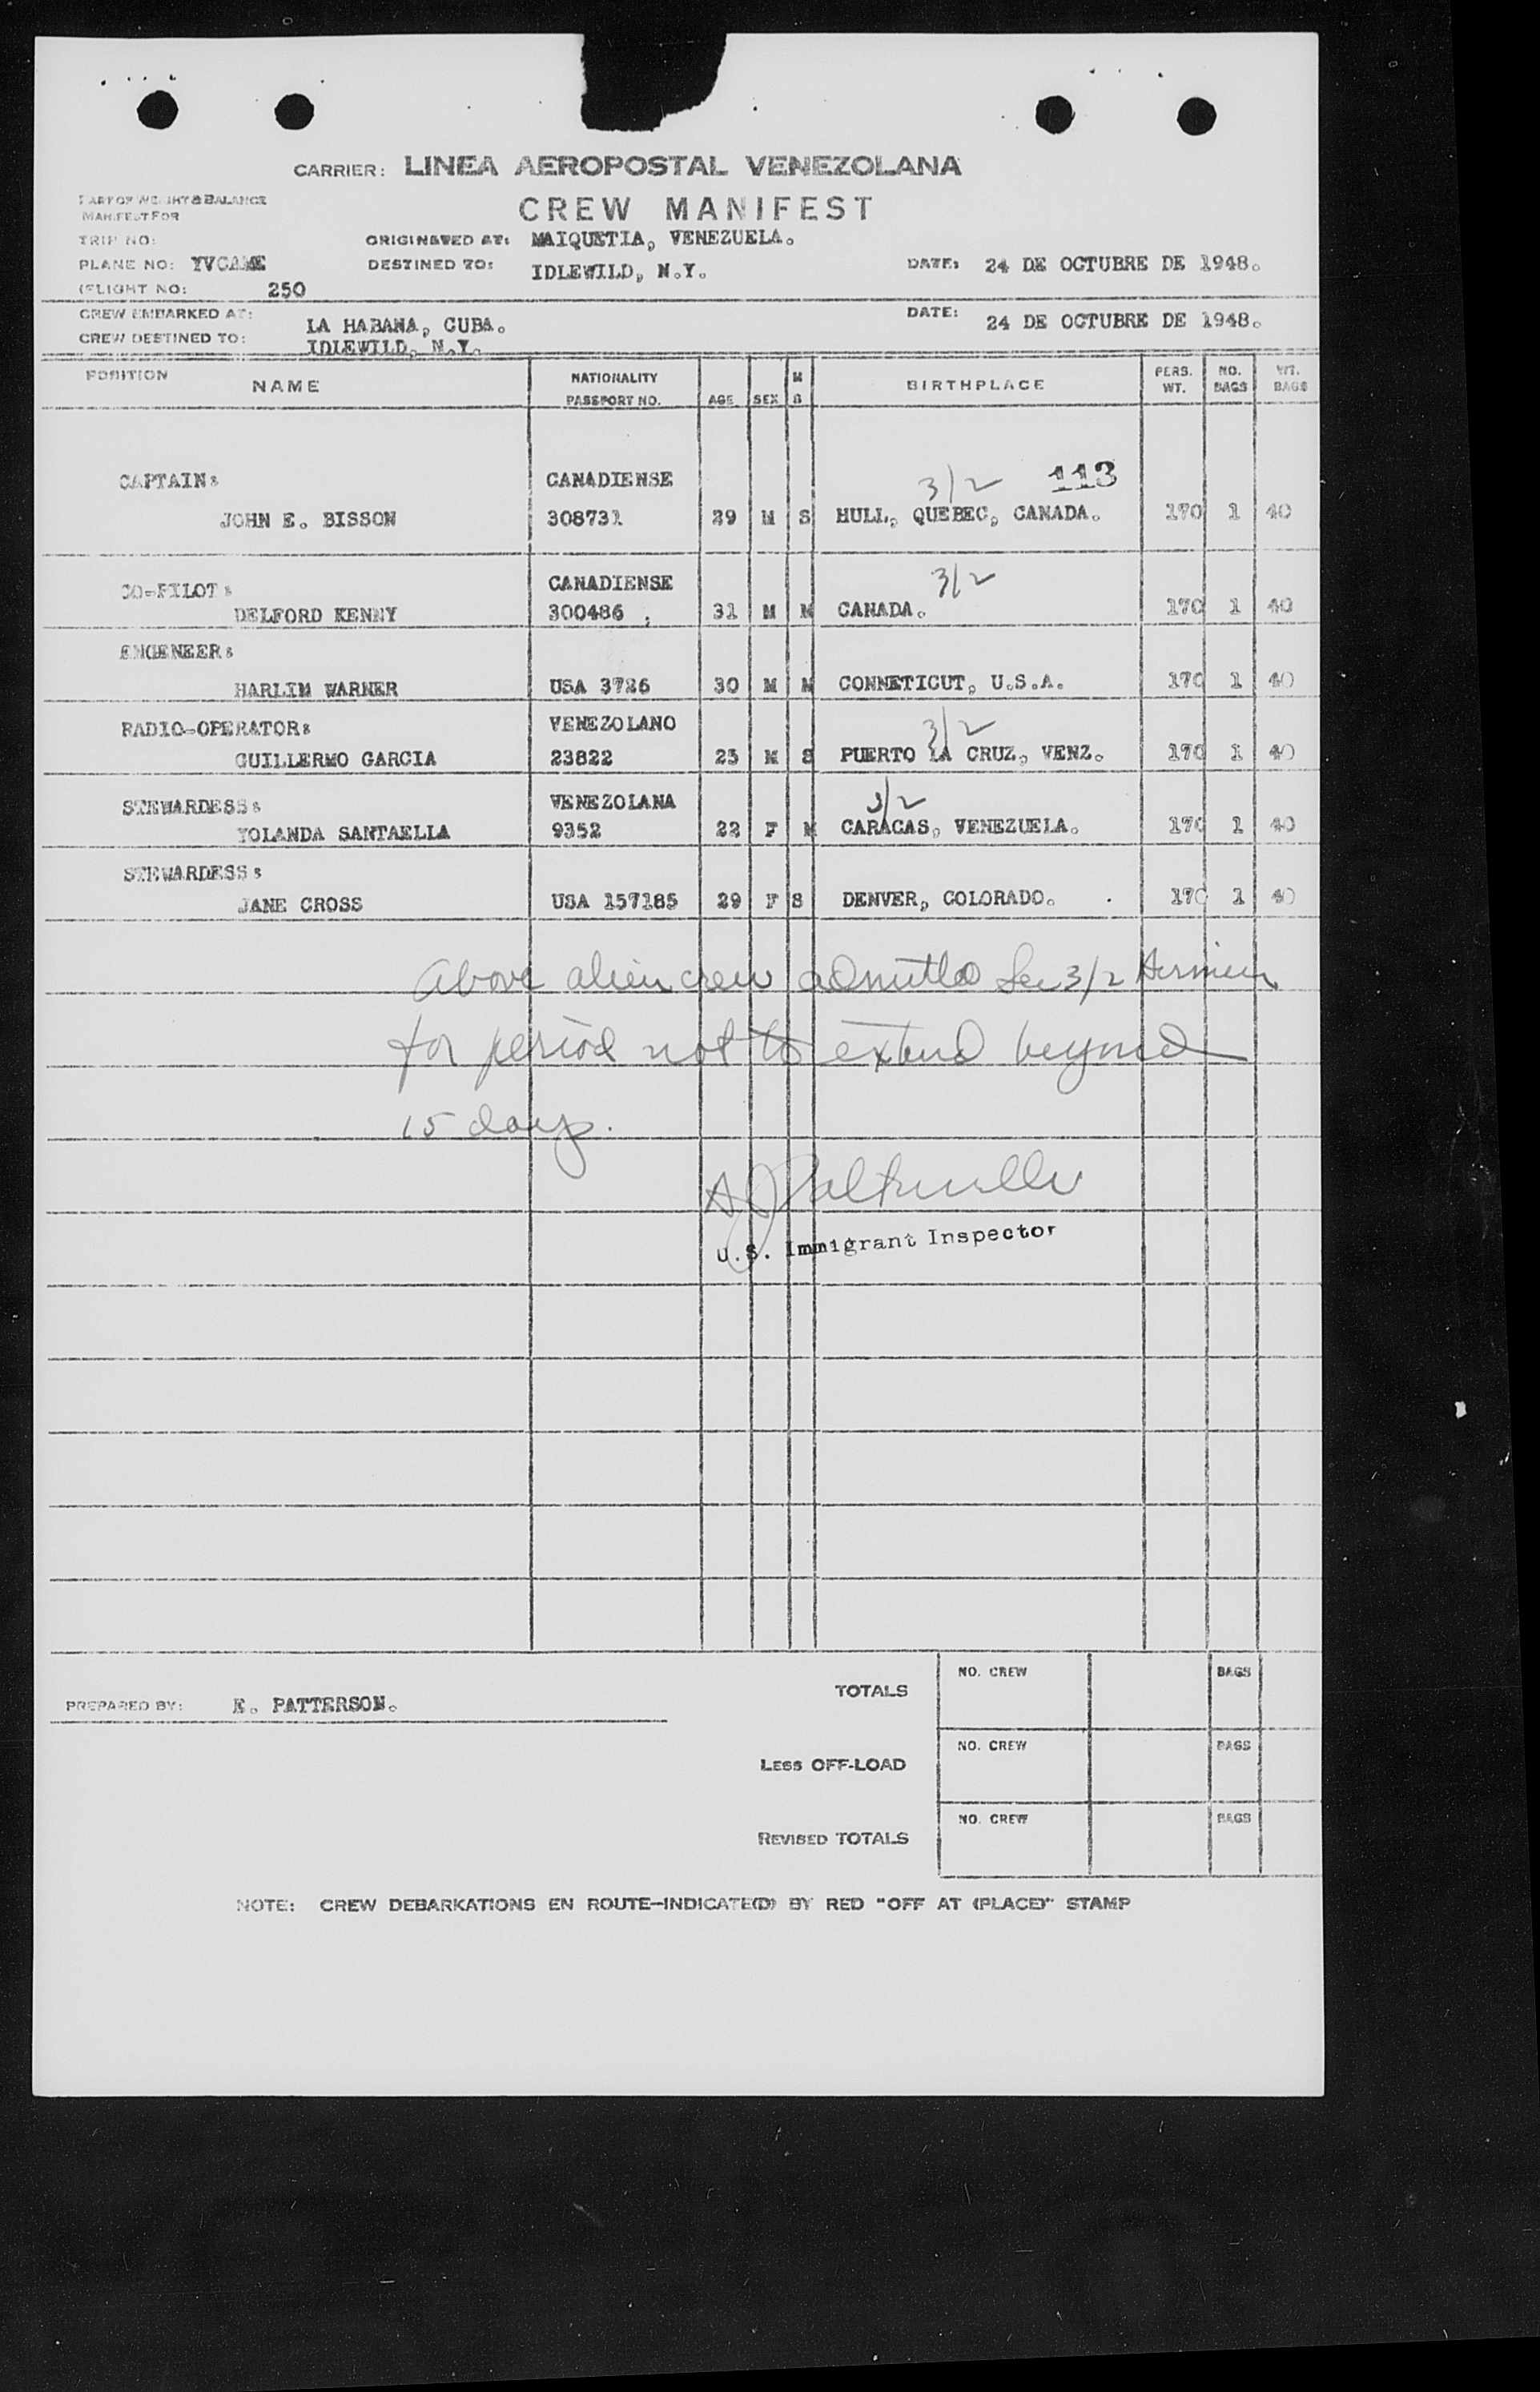 CARRIER: LINEA AEROPOSTAL VENEZOLANA
PART OF WEIGHT & BALANCE
MANIFEST FOR
CREW MANIFEST
TRIP NO:
ORIGINATED AT: MAIQUETIA, VENEZUELA.
PLANE NO:
DESTINED TO: IDLEWILD, N.Y.
DATE: 24 DE OCTUBRE DE 1948.
FLIGHT NO: 250
CREW EMBARKED AT: LA HABANA, CUBA.
DATE: 24 DE OCTUBRE DE 1948.
CREW DESTINED TO: IDLEWILD, N.Y.
POSITION NAME NATIONALITY PASSPORT NO. AGE SEX M S BIRTHPLACE PERS. WT. NO. BAGS WT. BAGS
CAPTAIN: CANADIENSE 3/2 113
JOHN E. BISSON 308731 29 M S HULL, QUEBEC, CANADA. 170 1 40
CO-PILOT: CANADIENSE 3/2
DELFORD KENNY 300486 31 M M CANADA. 170 1 40
ENGENEER:
HARLIM WARNER USA 3726 30 M M CONNETICUT, U.S.A. 170 1 40
RADIO-OPERATOR: VENEZOLANO 3/2
GUILLERMO GARCIA 23822 25 M S PUERTO LA CRUZ, VENZ. 170 1 40
STEWARDESS: VENEZOLANA 3/2
YOLANDA SANTAELLA 9352 22 F M CARACAS, VENEZUELA. 170 1 40
STEWARDESS:
JANE CROSS USA 157185 29 F S DENVER, COLORADO. 170 1 40
Above alien crew admitted Sec 3/2
for period not to extend beyond
15 days.
U.S. Immigrant Inspector
TOTALS NO. CREW BAGS
PREPARED BY: E. PATTERSON.
LESS OFF-LOAD NO. CREW BAGS
REVISED TOTALS NO. CREW BAGS
NOTE: CREW DEBARKATIONS EN ROUTE—INDICATE(D) BY RED "OFF AT (PLACE)" STAMP